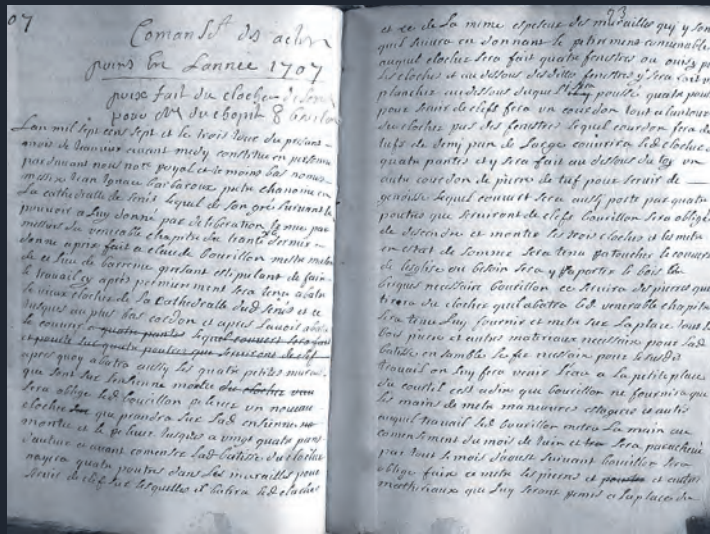 07
Comansᵗ des actes
puins En Lannee 1707
prix fait du clocher de Senes
pour Mʳ du chapit
Lan mil sept cens sept et le trois Jour du present
mois de Janvier avant midy constitue en personne
par devant nous notᵉ royal et temoins bas nomes
messire Jean Ignace barbaroux prtre chanoine en
La cathedralle de Senes lequel de son gré suivant le
pouvoir a Luy donné par deliberation tenue par
messieurs du venerable chapitre du trante dernier
donne a prix fait a claude bourillon mettre masson
de ce lieu de barreme presant et stipulant de faire
le travail cy après premierement sera tenu abatre
le vieux clocher de la Cathedralle dud Senes et ce
Jusques au plus bas cordon et apres Lavoir abatu
le couvrir a quatre pantes lequel couvert sera
et porté sur quatre poutres que serviront de clef
apres quoy abatra aussy les quatre petites murailles
que sont sur lensienne montée du clocher
sera oblige led bourillon eslever un nouveau
clocher que prandra sur lad ensienne
montée et le eslever Jusques a vingt quatre pans
dauteur et avant comenser lad batisse du clocher
mettra quatre poutres dans les murailles pour
servir de clef sur lesquelles il batira led clocher
23
et ce de La mime espeseur des murailles qui y sont
quil suivra en donnant le petirement convenable
auquel clocher sera fait quatre fenestres ou ouies pour
les cloches et au dessous desdites fenestres y sera fait un
plancher au dessous duquel sera pousse quatre poutres
pour servir de clefs fera un courdon tout a lantour
du clocher pres des fenestres lequel courdon sera de
tufs de demy pan de Large couvrira led clocher a
quatre pantes et y sera fait au dessous du un
autre courdon de pierre de tuf pour servir de
genoise lequel couvert sera aussy porté par quatre
poutres que serviront de clefs bourillon sera obligé
de dessendre et montér les trois cloches et les mettre
en estat de sonner sera tenu retoucher le couvert
de leglise ou besoin sera y raportér le bois et
briques necessaire bourillon ce servira des pierres que
tirera du clocher quil abatra led venerable chapitre
sera tenu Luy fournir et mettre sur La place tout le
bois pierre et autres materiaux necessaire pour lad
batisse en samble le fer necessaire pour le susdit
travail on luy fera venir Leau a La petite place
du courtil cest adire que bourillon ne fournira que
les mains de mettre manuvres estageres et autres
auquel travail led bourillon mettra La main au
comensement du mois de Juin et sera paracheué
par tout le mois daoust suivant bourillon sera
obligé faire mettre les pierres et et autres
matheriaux que luy seront remis a la place du